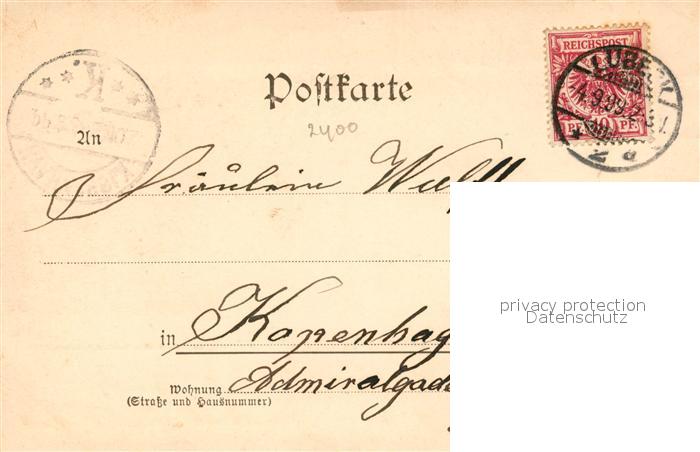 REICHSPOST
LÜBECK
4.9.99.2-3N.
10
PF PF
* 2 a
Postkarte
2400
* * K * *
An
Fräulein
in Kopenhag
Admiralgade
Wohnung
(Straße und Hausnummer)
privacy protection
Datenschutz